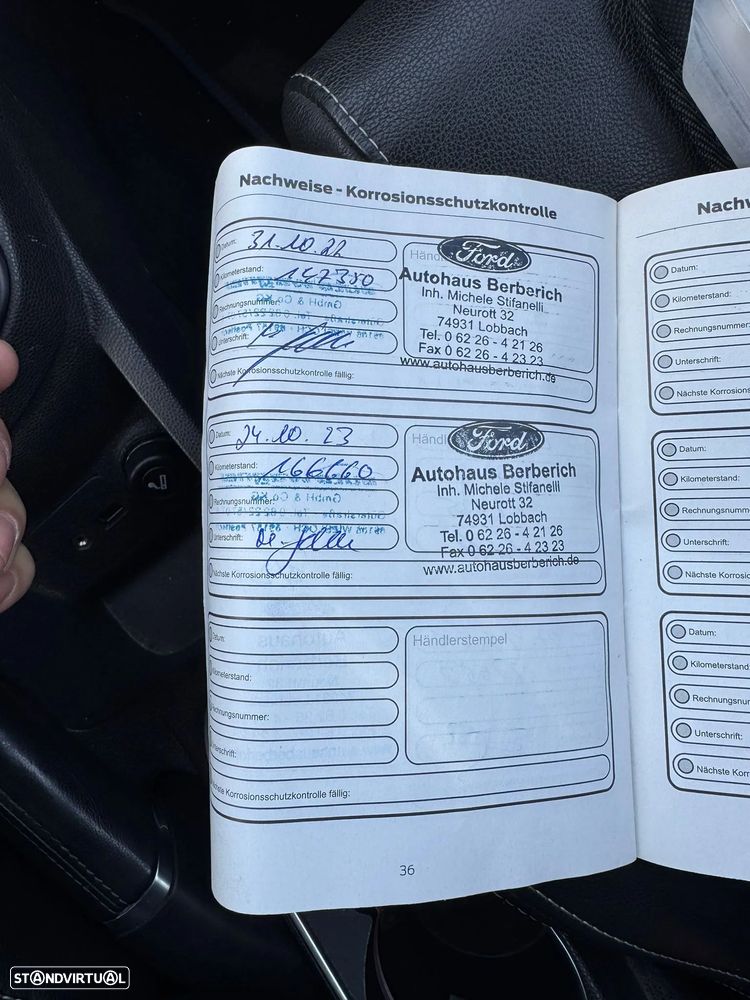 Nachweise - Korrosionsschutzkontrolle
Datum: 31.10.22
Kilometerstand: 147380
Rechnungsnummer:
Unterschrift:
Nächste Korrosionsschutzkontrolle fällig:
Händ
Ford
Autohaus Berberich
Inh. Michele Stifanelli
Neurott 32
74931 Lobbach
Tel. 0 62 26 - 4 21 26
Fax 0 62 26 - 4 23 23
www.autohausberberich.de
Datum: 24.10.23
Kilometerstand: 166660
Rechnungsnummer:
Unterschrift:
Nächste Korrosionsschutzkontrolle fällig:
Händl
Ford
Autohaus Berberich
Inh. Michele Stifanelli
Neurott 32
74931 Lobbach
Tel. 0 62 26 - 4 21 26
Fax 0 62 26 - 4 23 23
www.autohausberberich.de
Datum:
Kilometerstand:
Rechnungsnummer:
Unterschrift:
Nächste Korrosionsschutzkontrolle fällig:
Händlerstempel
36
Nachw
Datum:
Kilometerstand:
Rechnungsnummer:
Unterschrift:
Nächste Korrosions
Datum:
Kilometerstand:
Rechnungsnumme
Unterschrift:
Nächste Korrosio
Datum:
Kilometerstand:
Rechnungsnur
Unterschrift:
Nächste Korr
STANDVIRTUAL